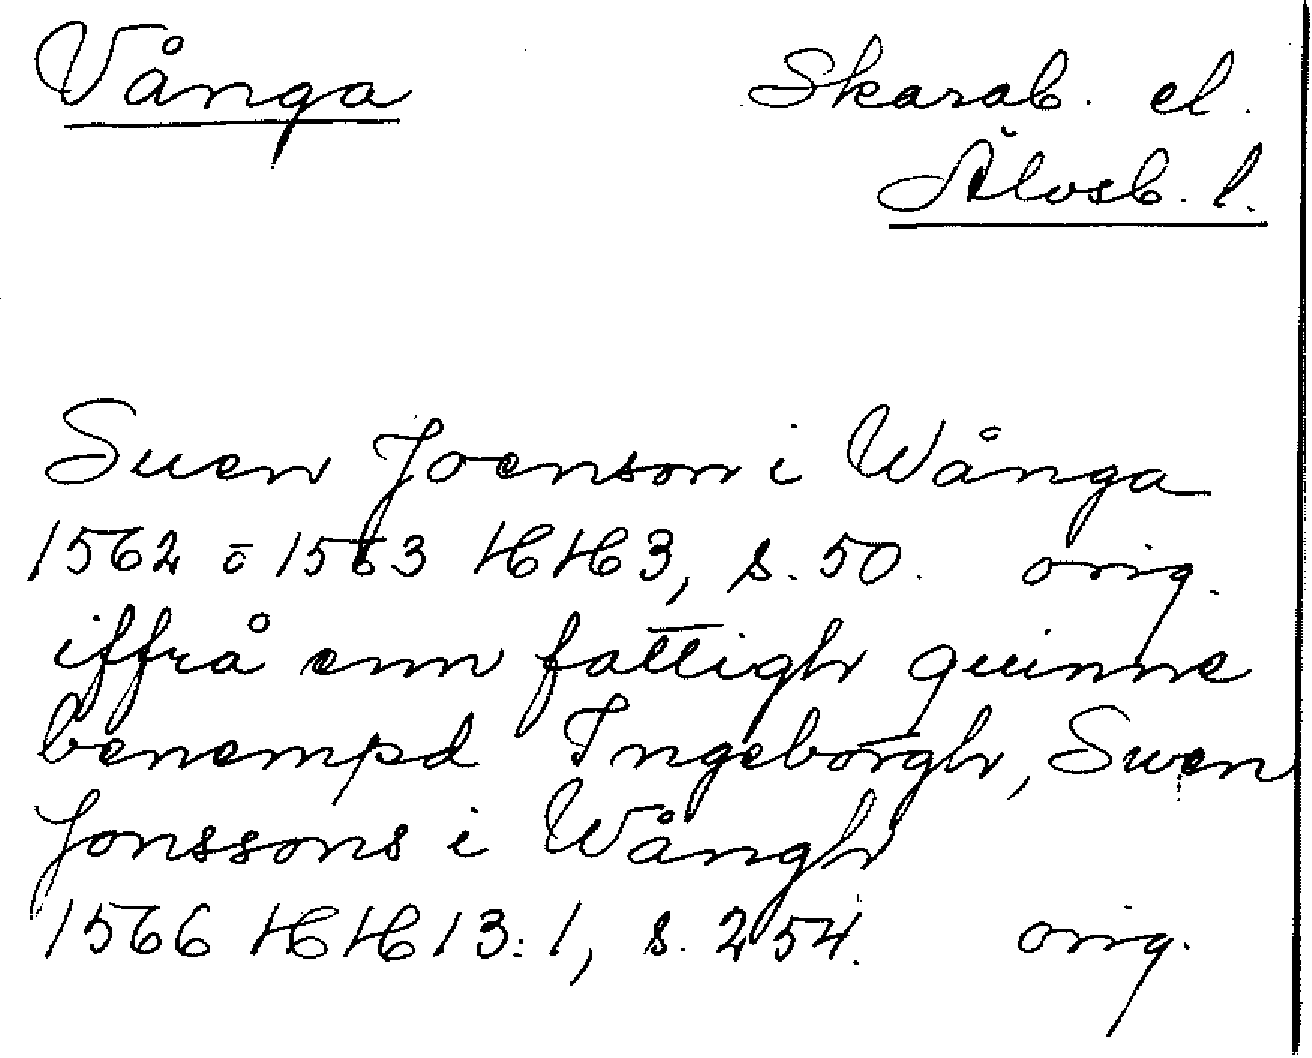 Vånga
Skarab. el.
Älvsb. l.
Suen Joenson i Wånga
1562 ō 1563 HH3, s. 50. orig.
iffrå enn fattigh quinne
benempd Ingeborgh, Swen
Jonssons i Wångh
1566 HH13:1, s. 254. orig.